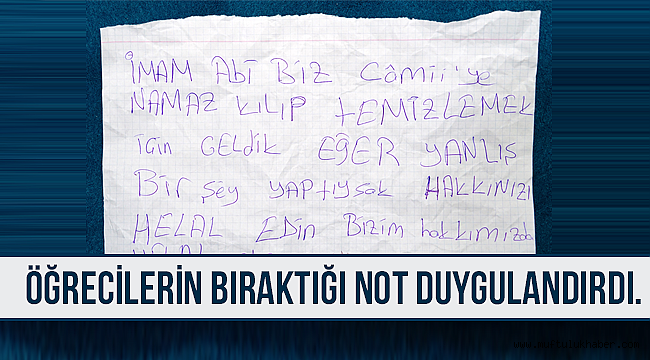 İMAM Abi Biz Câmii'ye
NAMAZ KILIP tEMİZLEMEK
için GELDİK EĞER YANLIŞ
Bir şey YAPtıysak HAKKINIZI
HELAL EDin Bizim hakkımızda
HELAL
ÖĞRECİLERİN BIRAKTIĞI NOT DUYGULANDIRDI.